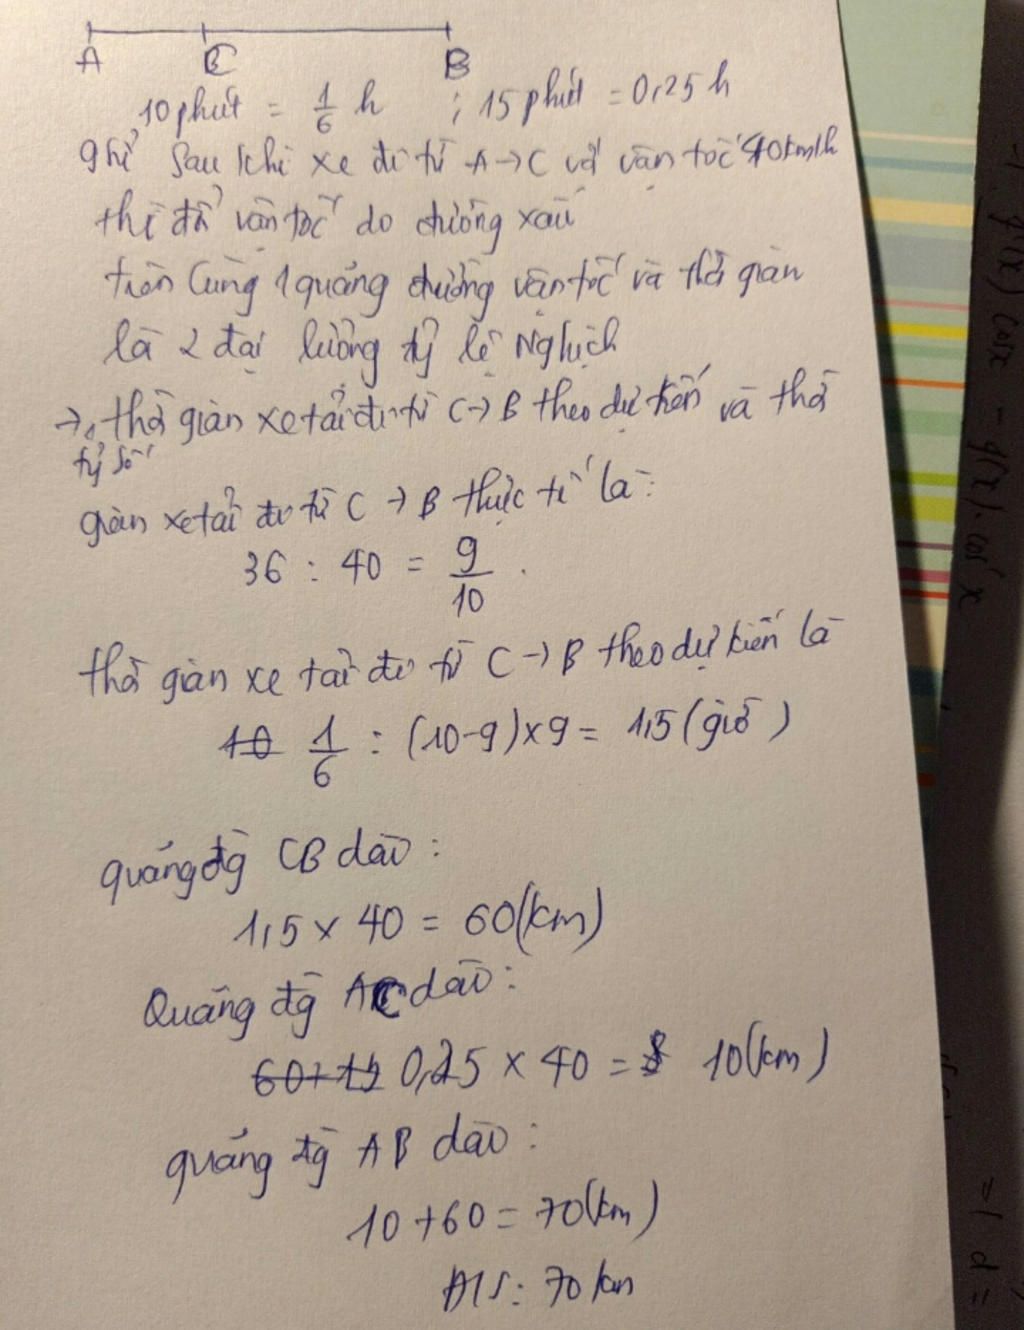 A C B
10 phút = 1/6 h ; 15 phút = 0,25 h
ghỉ sau khi xe đi từ A → C với vận tốc 40km/h
thì đổi vận tốc do đường xấu
trên cùng 1 quãng đường vận tốc và thời gian
là 2 đại lượng tỷ lệ nghịch
→ tỷ số thời gian xe tải đi từ C → B theo dự kiến và thời
gian xe tải đi từ C → B thực tế là:
36 : 40 = 9/10 .
thời gian xe tải đi từ C → B theo dự kiến là
1/6 : (10-9)x9 = 1,5 (giờ)
quãng đg CB dài :
1,5 x 40 = 60(km)
Quãng đg AC dài :
0,25 x 40 = 10(km)
quãng đg AB dài :
10 + 60 = 70(km)
Đ/S: 70 km
g(x) cosx - g(x).cos'x